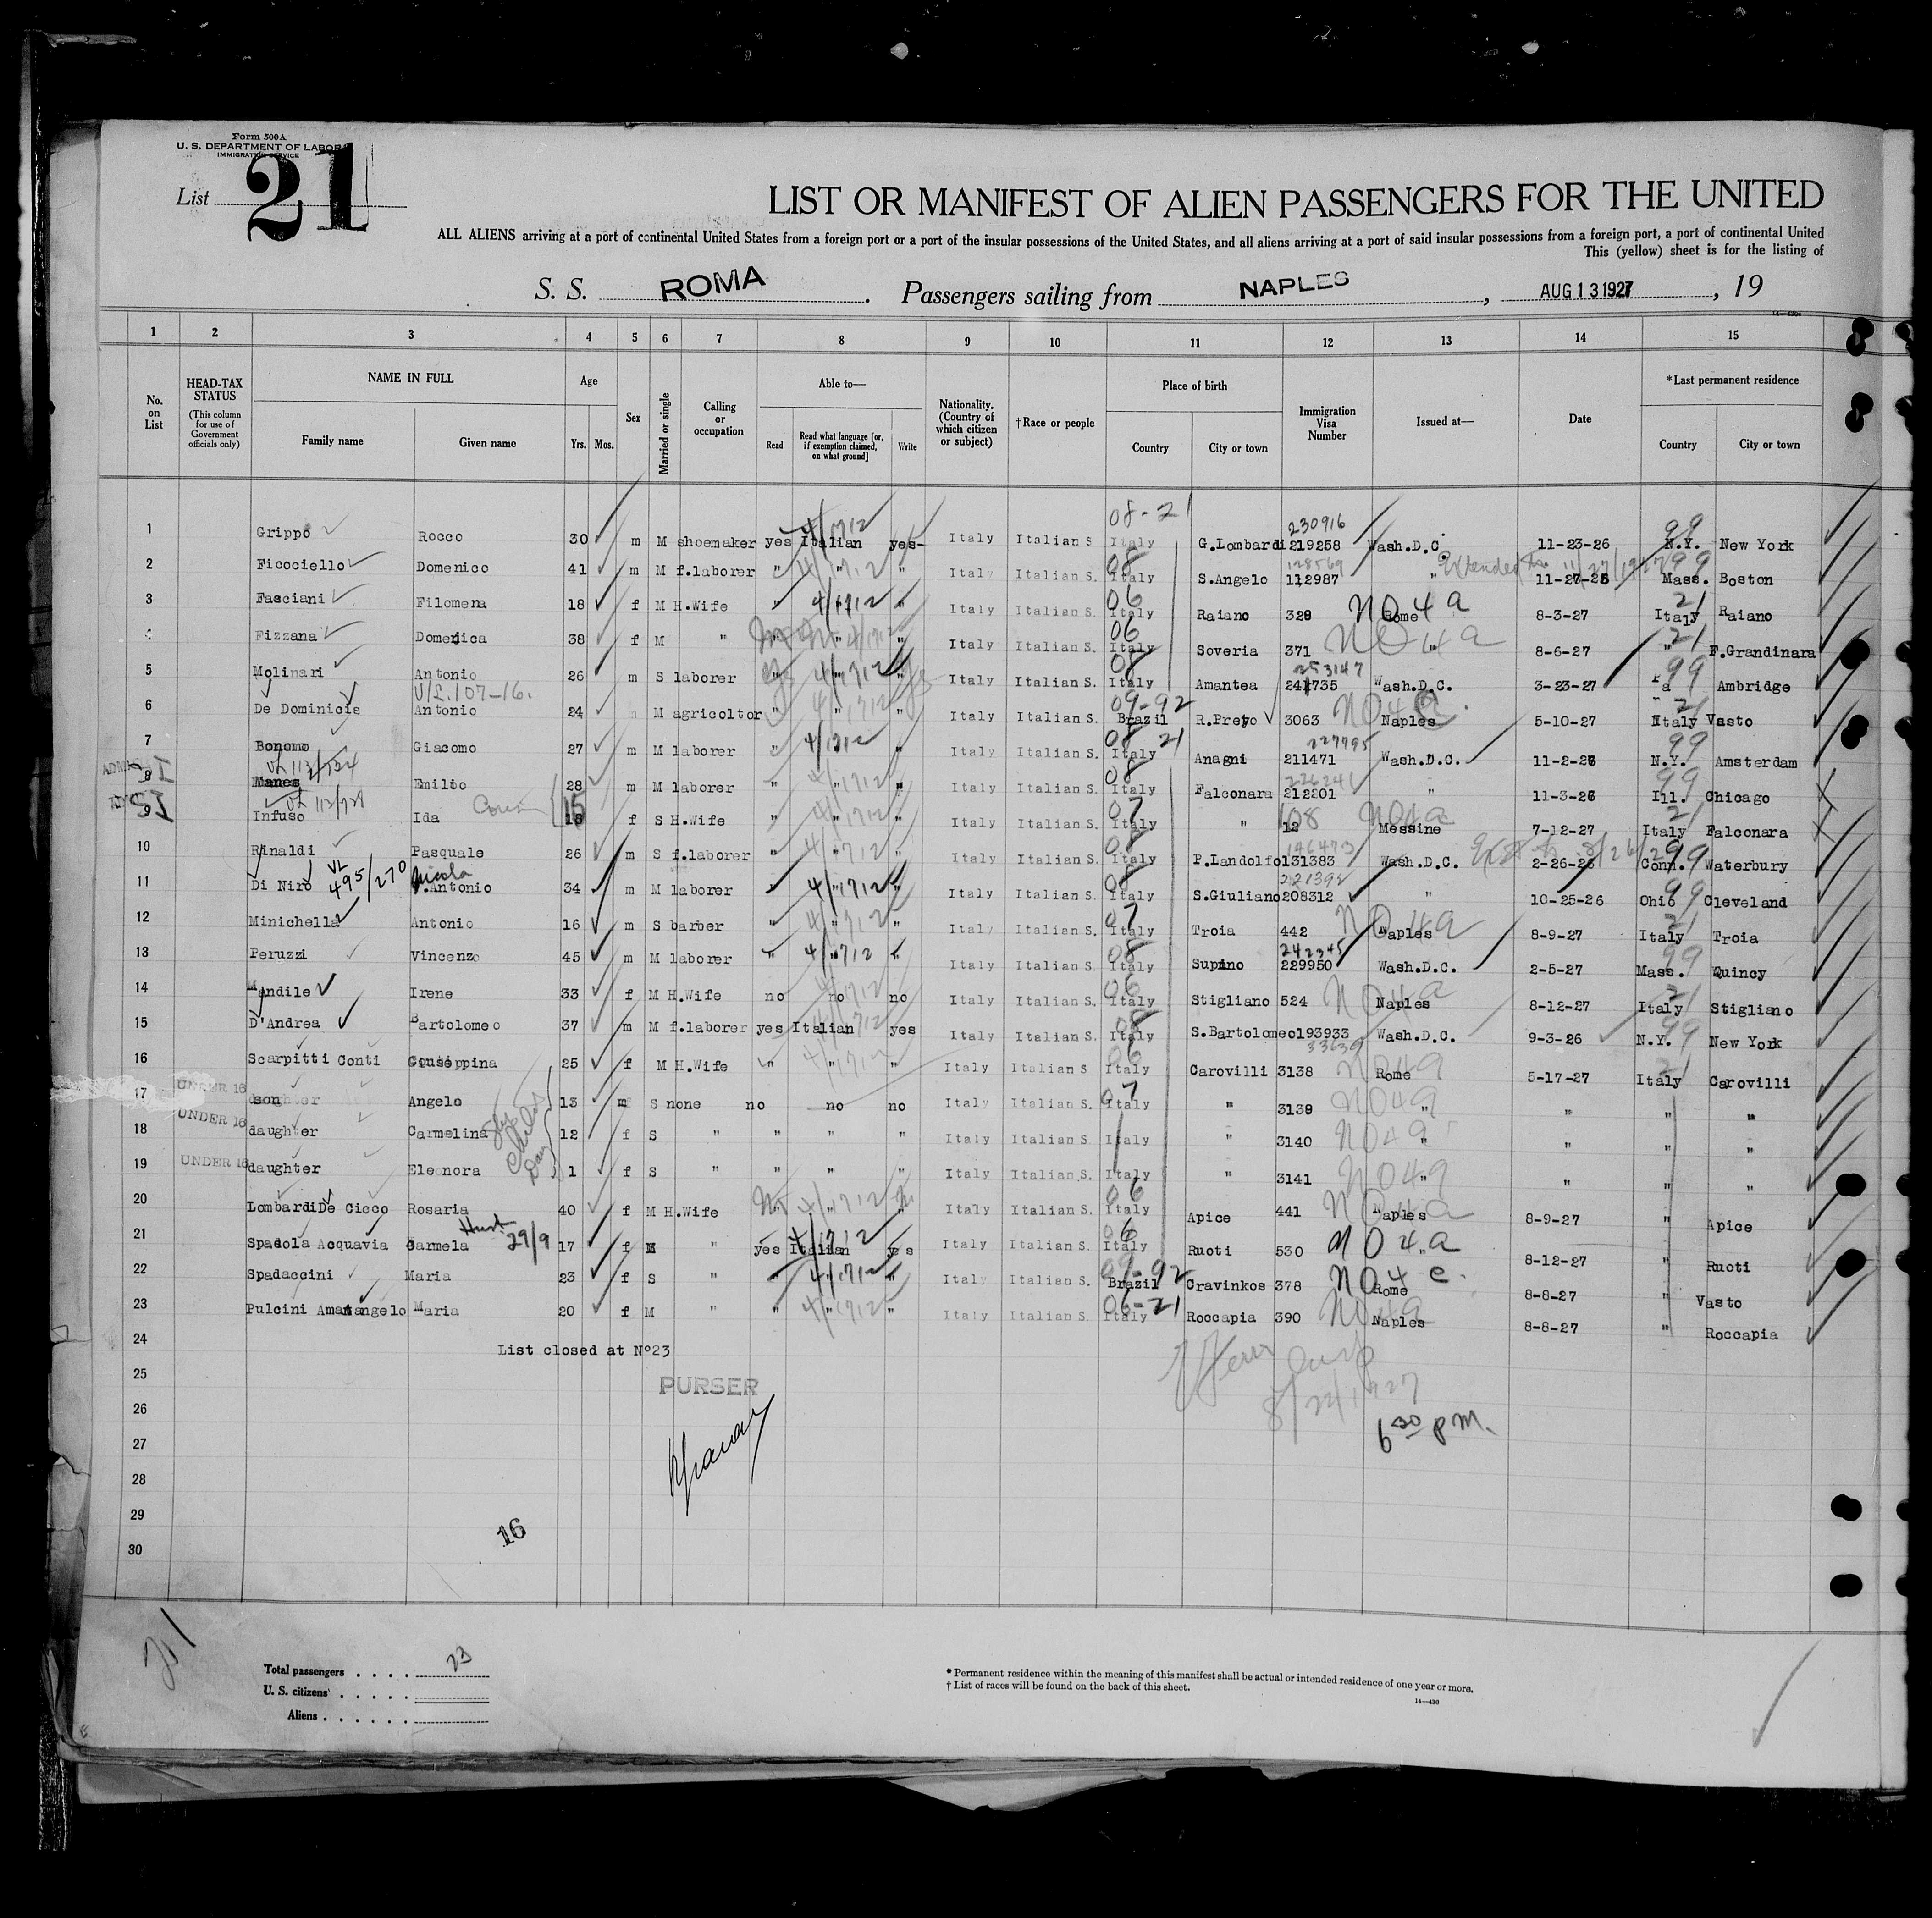 Form 500A
U. S. DEPARTMENT OF LABOR
IMMIGRATION SERVICE
List 21
LIST OR MANIFEST OF ALIEN PASSENGERS FOR THE UNITED
ALL ALIENS arriving at a port of continental United States from a foreign port or a port of the insular possessions of the United States, and all aliens arriving at a port of said insular possessions from a foreign port, a port of continental United
This (yellow) sheet is for the listing of
S. S. ROMA. Passengers sailing from NAPLES, AUG 13 1927, 19
1 2 3 4 5 6 7 8 9 10 11 12 13 14 15
No. on List
HEAD-TAX STATUS (This column for use of Government officials only)
NAME IN FULL
Family name
Given name
Age
Yrs. Mos.
Sex
Married or single
Calling or occupation
Able to—
Read
Read what language [or, if exemption claimed, on what ground]
Write
Nationality. (Country of which citizen or subject)
†Race or people
Place of birth
Country
City or town
Immigration Visa Number
Issued at—
Date
*Last permanent residence
Country
City or town
1 Grippo Rocco 30 m M shoemaker yes Italian 4/1712 yes Italy Italian S 08-21 Italy G.Lombardi 230916 219258 Wash.D.C. 11-23-26 99 N.Y. New York
2 Ficociello Domenico 41 m M f.laborer " 4/1712 " Italy Italian S. 08 Italy S.Angelo 128569 112987 " Extended to 11/27/1927 11-27-25 99 Mass. Boston
3 Fasciani Filomena 18 f M H.Wife " 4/1712 " Italy Italian S. 06 Italy Raiano 328 NO4a Rome 8-3-27 21 Italy Raiano
Fizzana Domenica 38 f M " " 4/1712 " Italy Italian S. 06 Italy Soveria 371 NO4a " 8-6-27 21 " F.Grandinara
5 Molinari Antonio 26 m S laborer " 4/1712 " Italy Italian S. 08 Italy Amantea 253147 241735 Wash.D.C. 3-23-27 99 Pa Ambridge
V/L.107-16.
6 De Dominicis Antonio 24 M agricoltor " 4/1712 " Italy Italian S. 09-92 Brazil R.Preyo 3063 NO4a Naples 5-10-27 21 Italy Vasto
7 Bonomo Giacomo 27 m M laborer " 4/1712 " Italy Italian S. 08 21 Italy Anagni 227795 211471 Wash.D.C. 11-2-26 99 N.Y. Amsterdam
VL 113/724
8 SI Manes Emilio 28 m M laborer " 4/1712 " Italy Italian S. 08 Italy Falconara 226241 212201 " 11-3-26 99 Ill. Chicago
VL 113/724
9 SI Infuso Ida Cousin 15 18 f S H.Wife " 4/1712 " Italy Italian S. 07 Italy " 108 12 NO4a Messine 7-12-27 21 Italy Falconara
10 Rinaldi Pasquale 26 m S f.laborer " 4/1712 " Italy Italian S. 08 Italy P.Landolfo 146473 131383 Wash.D.C. 2-26-26 99 Conn. Waterbury
11 Di Niro VL 495/270 Nicola .Antonio 34 m M laborer " 4/1712 " Italy Italian S. 08 Italy S.Giuliano 221392 208312 " 10-25-26 99 Ohio Cleveland
12 Minichella Antonio 16 m S barber " 4/1712 " Italy Italian S. 07 Italy Troia 442 NO4a Naples 8-9-27 21 Italy Troia
13 Peruzzi Vincenzo 45 m M laborer " 4/1712 " Italy Italian S. 08 Italy Supino 242345 229950 Wash.D.C. 2-5-27 99 Mass. Quincy
14 Mendile Irene 33 f M H.Wife no no 4/1712 no Italy Italian S. 06 Italy Stigliano 524 NO4a Naples 8-12-27 21 Italy Stigliano
15 D'Andrea Bartolomeo 37 m M f.laborer yes Italian 4/1712 yes Italy Italian S. 08 Italy S.Bartolomeo 193933 Wash.D.C. 9-3-26 99 N.Y. New York
16 Scarpitti Conti Giuseppina 25 f M H.Wife " 4/1712 " Italy Italian S 06 Italy Carovilli 3138 NO4a Rome 5-17-27 21 Italy Carovilli
17 UNDER 16 son Angelo 13 m S none no no no Italy Italian S. 07 Italy " 3139 NO4a " " " "
18 UNDER 16 daughter Carmelina 12 f S " " " " Italy Italian S. Italy " 3140 NO4a " " " "
19 UNDER 16 daughter Eleonora 1 f S " " " " Italy Italian S. Italy " 3141 NO4a " " " "
20 Lombardi De Cicco Rosaria 40 f M H.Wife " 4/1712 " Italy Italian S. 06 Italy Apice 441 NO4a Naples 8-9-27 " Apice
21 Spadola Acquavia Carmela 29/9 17 f M " yes Italian 4/1712 yes Italy Italian S. 06 Italy Ruoti 530 NO4a " 8-12-27 " Ruoti
22 Spadaccini Maria 23 f S " " 4/1712 " Italy Italian S. 09-92 Brazil Cravinkos 378 NO4c. Rome 8-8-27 " Vasto
23 Pulcini Amatangelo Maria 20 f M " " 4/1712 " Italy Italian S. 06-21 Italy Roccapia 390 NO4a Naples 8-8-27 " Roccapia
24 List closed at N°23
25 PURSER
26 8/22/1927
27 6 30 p M.
28
29
30 16
21
Total passengers . . . . 23
U. S. citizens . . . . .
Aliens . . . . . .
* Permanent residence within the meaning of this manifest shall be actual or intended residence of one year or more.
† List of races will be found on the back of this sheet.
14—430